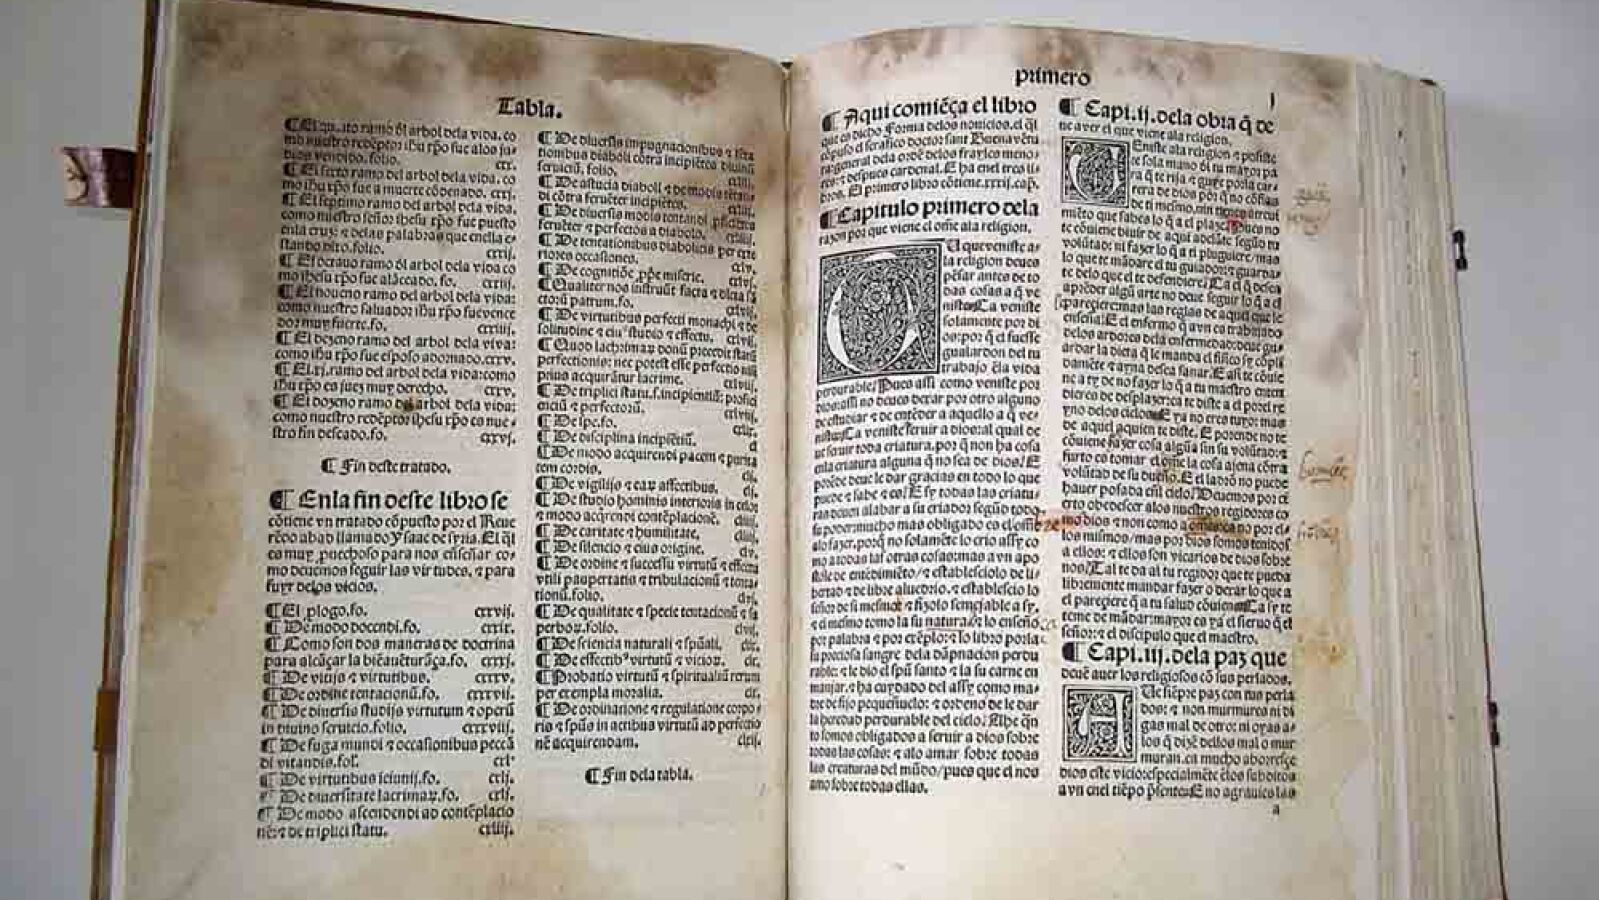 Tabla.
¶ El quito ramo ðl arbol dela vida, co
mo nuestro redẽptor ihu xp̃o fue alos ju-
dios vendido. folio. cxx.
¶ El sexto ramo del arbol dela vida, co
mo ihu xp̃o fue a muerte cõdenado. cxxj.
¶ El septimo ramo del arbol dela vida.
como nuestro señor ihesu xp̃o fue puesto
enla cruz: ⁊ delas palabras que enella e-
stando dixo. folio. cxxij.
¶ El octauo ramo ðl arbol dela vida co
mo ihesu xp̃o fue alãceado. fo. cxxiij.
¶ El noueno ramo del arbol dela vida:
como nuestro saluador ihu xp̃o fue vence
dor muy fuerte. fo. cxxiiij.
¶ El dezeno ramo del arbol dela vida:
como ihu xp̃o fue esposo adornado. cxxv.
¶ El .xj. ramo del arbol dela vida: como
ihu xp̃o es juez muy derecho. cxxv.
¶ El dozeno ramo del arbol dela vida:
como nuestro redẽptor ihesu xp̃o es nue-
stro fin desseado. fo. cxxvj.
¶ Fin deste tratado.
¶ Enla fin deste libro se
cõtiene vn tratado cõpuesto por el Reue
rẽdo abad llamado ysaac de syria. El q̃l
es muy puechoso para nos enseñar co-
mo deuemos seguir las virtudes, ⁊ para
fuyr delos vicios.
¶ El plogo. fo. cxxvij.
¶ De modo docendi. fo. cxxix.
¶ Como son dos maneras de doctrina
para alcãçar la biẽauẽturãça. fo. cxxxj.
¶ De vicijs ⁊ virtutibus. cxxxv.
¶ De ordine tentacionũ. fo. cxxxvij.
¶ De diuersis studijs virtutum ⁊ operũ
in diuino seruicio. fo. cxxxviij.
¶ De fuga mundi ⁊ occasionibus peccã
di vitandis. fol.
¶ De virtutibus ieiunij. fo. cxlj.
¶ De diuersitate lacrimaꝝ. fo. cxlij.
¶ De modo ascendendi ad contẽplacio
nẽ: ⁊ de triplici statu. cxliij.
¶ De diuersis impugnacionibus ⁊
tionibus diaboli cõtra incipiẽtes diuinũ
seruiciũ. folio.
¶ De astucia diaboli ⁊ de modis
di cõtra feruẽter incipiẽtes.
¶ De diuersis modis tentandi
feruẽter ⁊ perfectos a diabolo.
¶ De tentationibus diabolicis per
riores occasiones. cxlv.
¶ De cognitiõe pp̃e miserie. cxlvj.
¶ Qualiter nos instruũt facta ⁊ dicta sã
ctorũ patrum. fo. cxlvij.
¶ De virtutibus perfecti monachi ⁊ de
solitudine ⁊ eiꝰ studio ⁊ effectu. cxlvij.
¶ Quod lachrimaꝝ donũ precedit statũ
perfectionis: nec potest esse perfectio nisi
prius acquirãtur lacrime. cxlviij.
¶ De triplici statu .s. incipientiũ: profici
enciũ ⁊ perfectorũ. cxlviij.
¶ De spe. fo. cxlix.
¶ De disciplina incipiẽtiũ. cl
¶ De modo acquirendi pacem ⁊ purita
tem cordis. clj.
¶ De vigilijs ⁊ eaꝝ affectibus. clj.
¶ De studio hominis interioris in celos
⁊ modo acq̃rendi contẽplacionẽ. cliij.
¶ De caritate ⁊ humilitate. cliiij.
¶ De silencio ⁊ eius origine. clv.
¶ De ordine ⁊ successu virtutũ ⁊ effectu
vtili paupertatis ⁊ tribulacionũ ⁊ tenta-
tionũ. folio. clvj.
¶ De qualitate ⁊ specie tentacionũ ⁊ su
perboꝝ. folio. clvij.
¶ De sciencia naturali ⁊ spũali. clix.
¶ De effectibꝰ virtutũ ⁊ vicioꝝ. clx.
¶ Probatio virtutũ ⁊ spiritualiũ rerum
per exempla moralia. clx.
¶ De ordinatione ⁊ regulatione corpo-
ris ⁊ spũs in actibus virtutũ ad perfectio
nẽ acquirendam. clxij.
¶ Fin dela tabla.
primero
j
¶ Aqui comiẽça el libro
que es dicho Forma delos nouicios. el q̃l
cõpuso el serafico doctor sant Buenauẽtu
ra: general dela ordẽ delos frayles meno-
res: ⁊ despues cardenal. E ha enel tres li-
bros. El primero libro cõtiene .xxxij. cap̃.
¶ Capitulo primero dela
razon por que viene el om̃e ala religion.
A que veniste a-
la religion deues
pẽsar antes de to
das cosas a q̃ ve
niste. Ca veniste
solamente por di
os: por q̃ el fuesse
gualardon del tu
trabajo ẽla vida
perdurable. Pues assi como veniste por
dios: assi no deues dexar por otro alguno
de estudiar ⁊ de entẽder a aquello a q̃ ve-
niste. Ca veniste seruir a dios: al qual de
ue seruir toda criatura, por q̃ non ha cosa
enla criatura alguna q̃ no sea de dios. E
porẽde deue le dar gracias en todo lo que
puede ⁊ sabe ⁊ es. E sy todas las criatu-
ras deuen alabar a su criador segũd todo
su poder: mucho mas obligado es el om̃e
alo fazer, porq̃ no solamẽte lo crio assy co
mo a todas las otras cosas: mas a vn apo
stole de entẽdimiẽto/ ⁊ establesciolo de li-
bertad ⁊ de libre aluedrio. ⁊ establescio lo
señor de si mesmo: ⁊ fizolo semejable a sy.
⁊ el mesmo tomo la su natura: ⁊ lo enseño
por palabra ⁊ por exẽplo: ⁊ lo libro por la
su preciosa sangre dela dãpnacion perdu
rable: ⁊ le dio el spũ santo ⁊ la su carne en
manjar. ⁊ ha cuydado del assy como ma-
dre de fijo pequeñuelo: ⁊ ordeno de le dar
la heredad perdurable del cielo. Albe q̃n
to somos obligados a seruir a dios sobre
todas las cosas: ⁊ alo amar sobre todas
las creaturas del mũdo/ pues que el nos
amo sobre todas ellas.
¶ Capi. ij. dela obra q̃ de
ue auer el que viene ala religion.
Eniste ala religion ⁊ posiste
te sola mano ðl tu mayor pa
ra q̃ te rija ⁊ guye por la car-
rera de dios por q̃ no cõfias
de ti mesmo,
miẽto que sabes lo q̃ a el plaze. Pues no
te cõuiene biuir de aqui adelãte segũo tu
volũtad: ni fazer lo q̃ a ti pluguiere/ mas
lo que te mãdare el tu guiador: ⁊ guardar
te delo que el te defendiere. Ca el q̃ dessea
aprẽder algũ arte no deue seguir lo q̃ a el
paresciere: mas las reglas de aquel que le
enseña. E el enfermo q̃ avn es trabajado
delos ardores dela enfermedad: deue gu-
ardar la dieta q̃ le manda el fisico sy cõpli
damẽte ⁊ ayna dessea sanar. E assi te cõuie
ne a ti de no fazer lo q̃ a tu maestro enten
dieres de desplazer: ca te diste a el por el re
yno delos cielos. E ya no eres tuyo: mas
de aquel aquien te diste. E porende no te
cõuiene fazer cosa algũa sin su volũtad: ⁊
furto es tomar el om̃e la cosa ajena cõtra
volũtad de su dueño. E el ladrõ no puede
hauer posada enl cielo. Deuemos por ci
erto obedescer alos nuestros regidores co
mo dios ⁊ non como a omes: ca no por el-
los mismos/ mas por dios somos tenidos
a ellos: ⁊ ellos son vicarios de dios sobre
nos. Tal te da al tu regidor que te pueda
libremente mandar fazer o dexar lo que a
el paresciere q̃ a tu salud cõuiene. Ca sy te
teme de mãdar: mayor es ya el sieruo q̃ el
señor: ⁊ el discipulo que el maestro.
¶ Capi. iij. dela paz que
deuẽ auer los religiosos cõ sus perlados.
Ue siẽpre paz con tus perla
dos: ⁊ non murmures ni di
gas mal de otro: ni oyas a-
los q̃ dizẽ dellos mal o mur
muran. ca mucho aborresce
dios este vicio: especialmẽte ðlos subditos
avn enel tiẽpo p̃sente. E no agrauies las
a